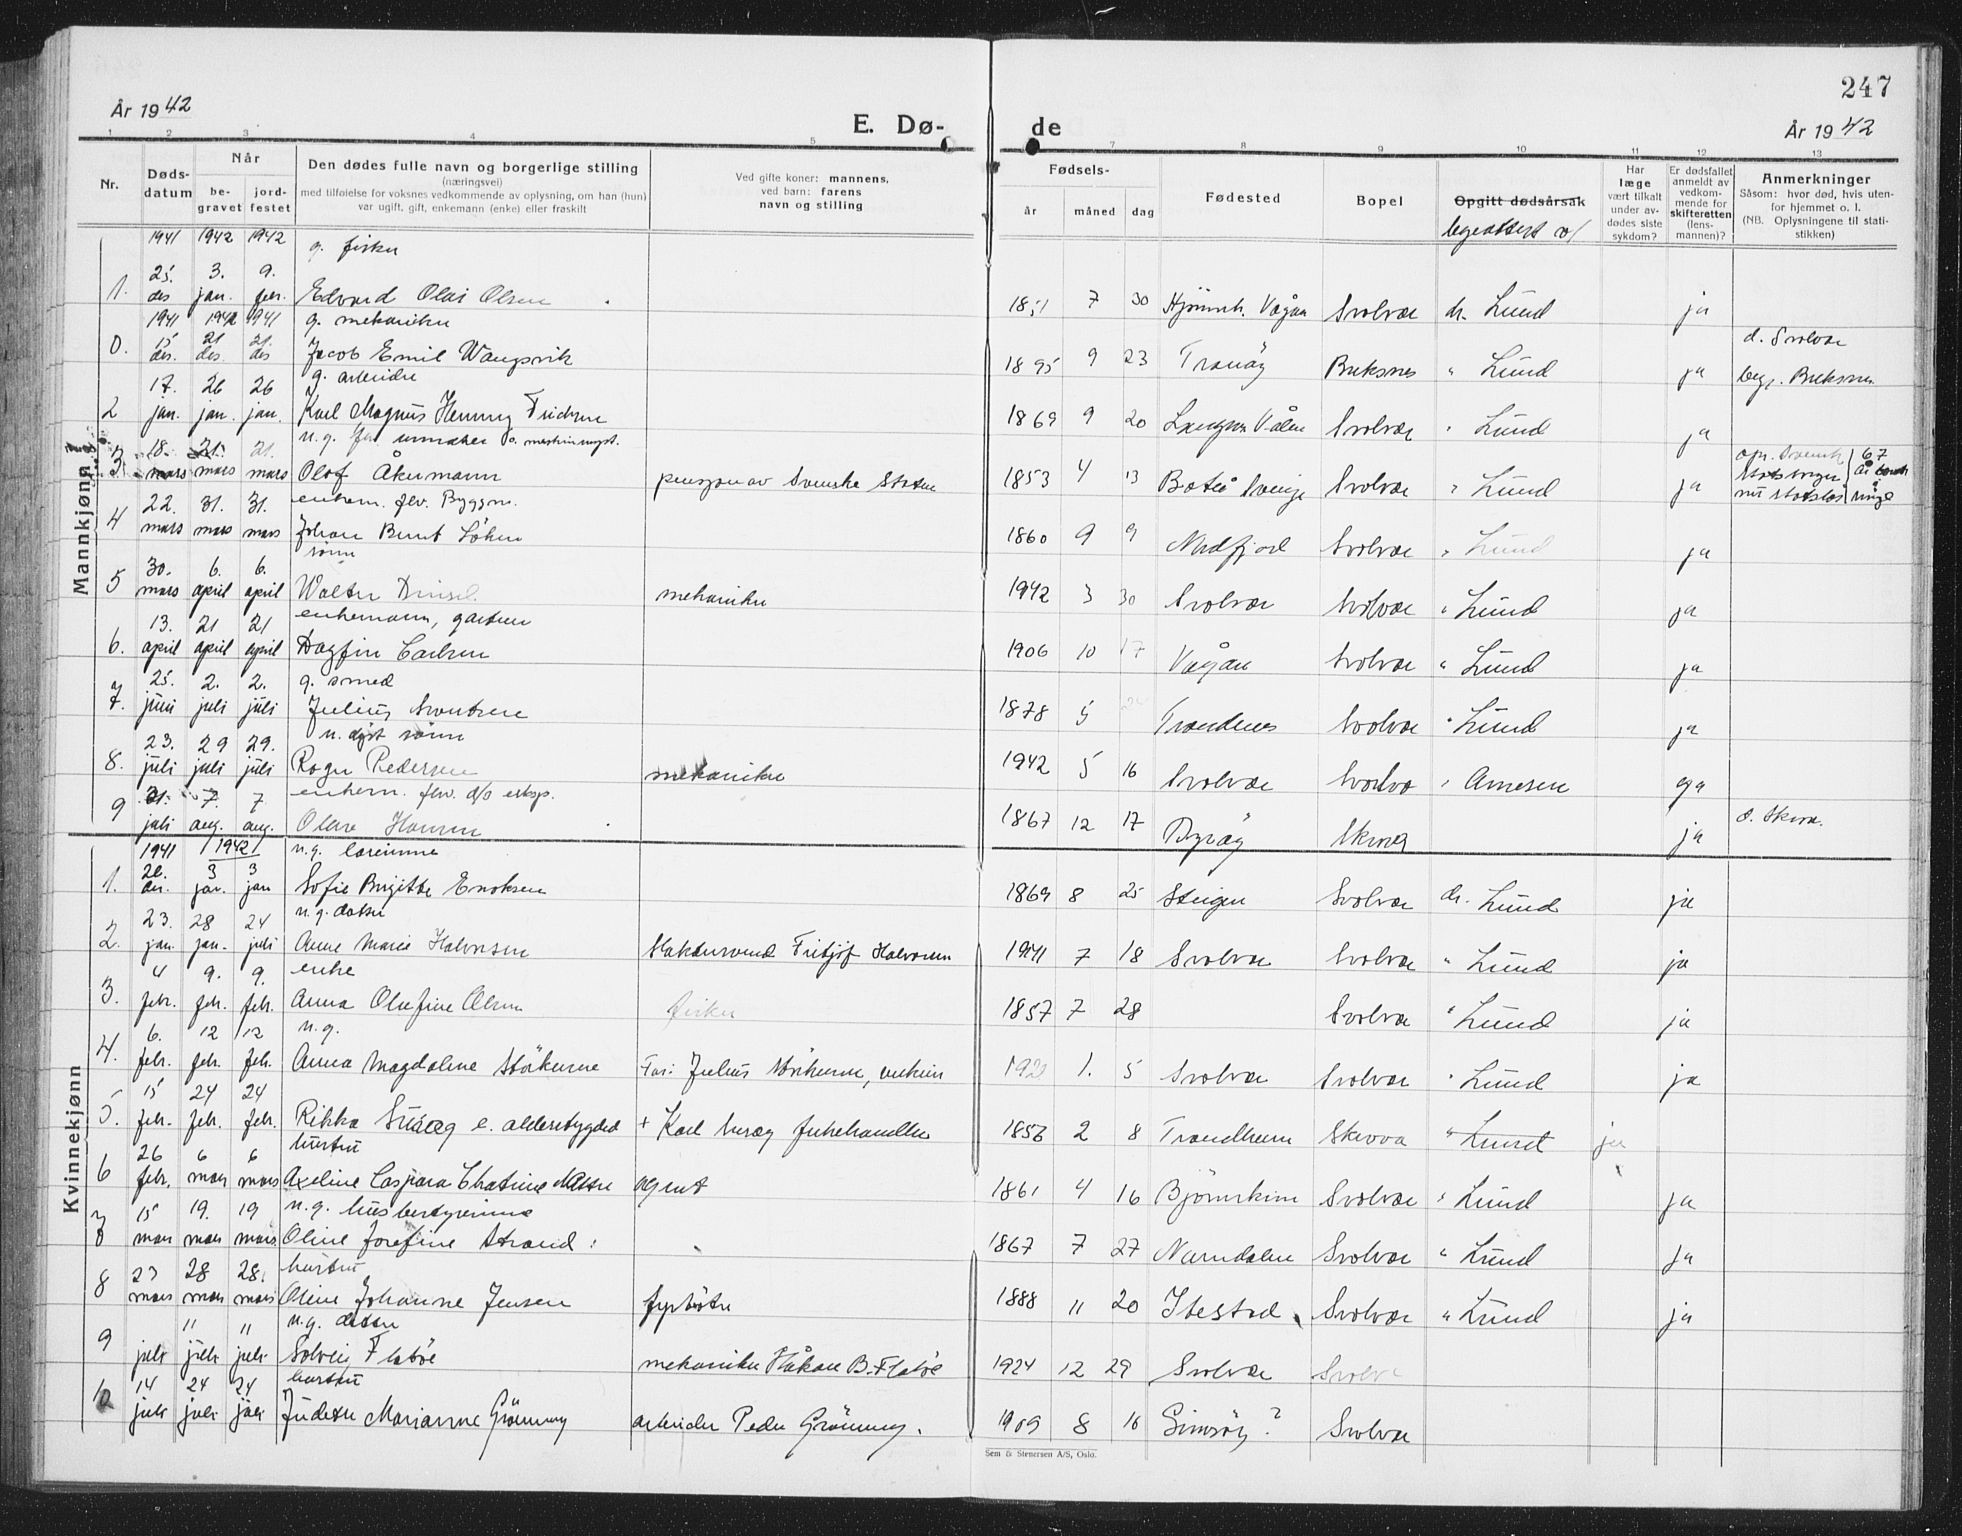 247
År 1942
E. Dø-
de
År 1942
1 2 3 4 5 7 8 9 10 11 12 13
Nr.
Døds-
datum
Når
be-
gravet
jord-
festet
Den dødes fulle navn og borgerlige stilling
(næringsvei)
med tilføielse for voksnes vedkommende av oplysning, om han (hun)
var ugift, gift, enkemann (enke) eller fraskilt
Ved gifte koner: mannens,
ved barn: farens
navn og stilling
Fødsels-
år måned dag
Fødested
Bopel
Opgitt dødsårsak
Har
læge
vært tilkalt
under av-
dødes siste
sykdom?
Er dødsfallet
anmeldt av
vedkom-
mende for
skifteretten
(lens-
mannen)?
Anmerkninger
Såsom: hvor død, hvis uten-
for hjemmet o. l.
(NB. Oplysningene til stati-
stikken)
Mannkjønn
1941 1942 1942 g. fisker
1. 25. des 3. jan. 9. febr. Edvard Olai Olsen 1851 7 30 Vågan Svolvær dr. Lund ja
1941 1942 1941 g. mekaniker
0. 15 des. 21 des. 21. des Jacob Emil Wangsvik 1895 9 23 Tranøy Buksnes " Lund ja d. Svolvær
begr. Buksnes
g. arbeider
2 17. jan. 26 jan. 26 jan. Karl Magnus Henning 1869 9 20 Svolvær " Lund ja
3. 18. mars 21. mars 21. mars Olof Åkermann pensjon av Svenske Staten 1853 4 13 Svolvær " Lund ja
enkem. fhv. Byggm.
4 22. mars 31. mars 31. mars Johan Bernt Löken 1860 9 9 Medfjord Svolvær " Lund ja
sönn
5 30. mars 6. april 6. april Walter mekaniker 1942 3 30 Svolvær Svolvær " Lund ja
enkemann, gartner
6. 13. april 21 april 21 april Dagfin Carlsen 1906 10 17 Vågan Svolvær " Lund ja
g. smed
7. 25. juni 2. juli 2. juli Julius Sventsen 1878 5 24 Trondenes Svolvær " Lund ja
u. døpt sönn
8. 23. juli 29 juli 29. juli Roger Pedersen mekaniker 1942 5 16 Svolvær Svolvær " Arnesen ja
9 31. juli 7. aug. 7 aug. Olave Hansen 1867 12 17 Dyrøy Skrova ja d. Skrova.
Kvinnekjønn
1941 1942 u.g. lærerinne
1. 3 jan. 3 jan Sofie Birgitte Enoksen 1869 8 25 Steigen Svolvær dr. Lund ja
u.g. datter
2. 23. jan. 28 jan. 24 juli Anne Marie Halvorsen Fritjof Halvorsen 1941 7 18 Svolvær Svolvær " Lund ja
enke
3. 4 febr. 9. febr. 9. febr. Anna Olufine Olsen fisker 1857 7 28 Svolvær " Lund ja
u.g.
4. 6. febr. 12 febr. 12 febr. Anna Magdalene Störkersen Far: Julius Störkersen, 1. 5 Svolvær Svolvær " Lund ja
5. 15 febr. 24 febr. 24 febr. Rikka e. + Karl 2 8 Trondheim Skrova " Lund ja
hustru
6 26 febr. 6 mars 6 mars Axeline Caspara agent 1861 4 16 Svolvær " Lund ja
u.g. husbestyrerinne
7 15 mars 19. mars 19 mars. Oline Josefine Strand. 1867 7 27 Namdalen Svolvær " Lund ja
hustru
8 23 mars 28 mars 28. mars Oline Johanne Jensen fyrböter 1888 11 20 Ibestad Svolvær " Lund ja
u.g. datter
9 juli 11 juli 11 juli Solveig Flatöe mekaniker Håkon B. Flatöe 1924 12 29 Svolvær Svolvær
hustru
10 14 juli 24 juli 24 juli Judith Marianne Grönning arbeider Peder Grönning. 1909 8 16 Gimsöy? Svolvær
Sem & Stenersen A/S, Oslo.